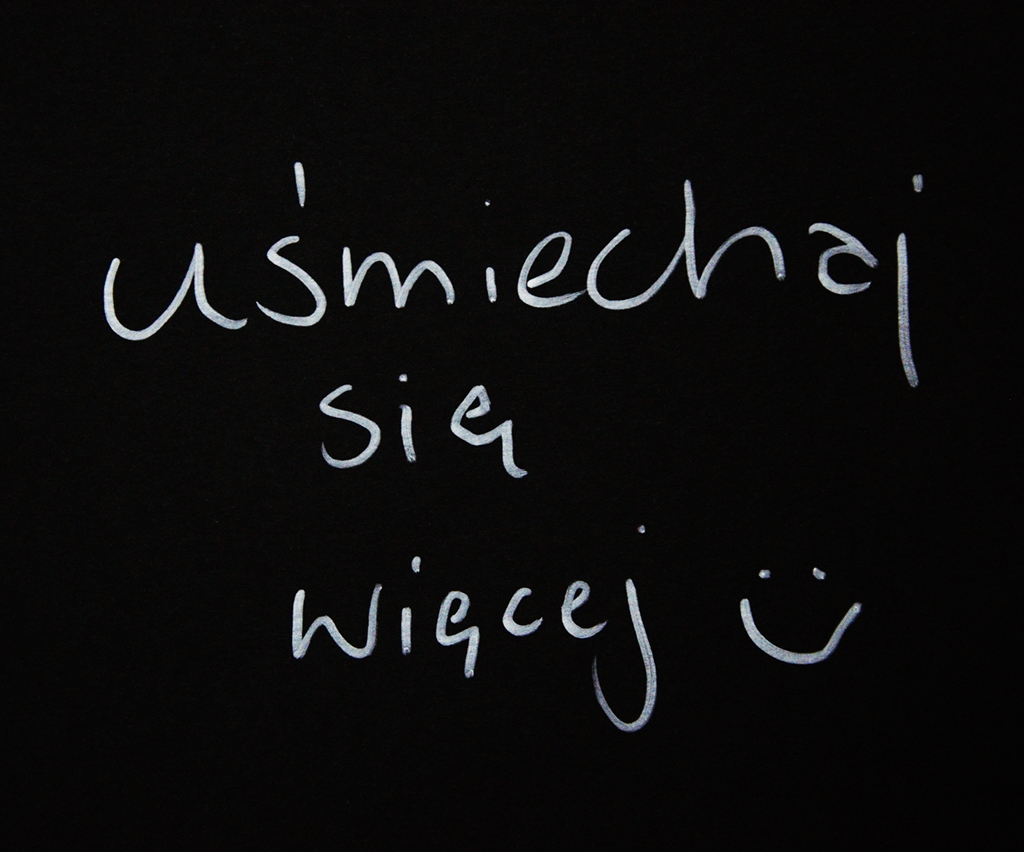 uśmiechaj
się
więcej :)